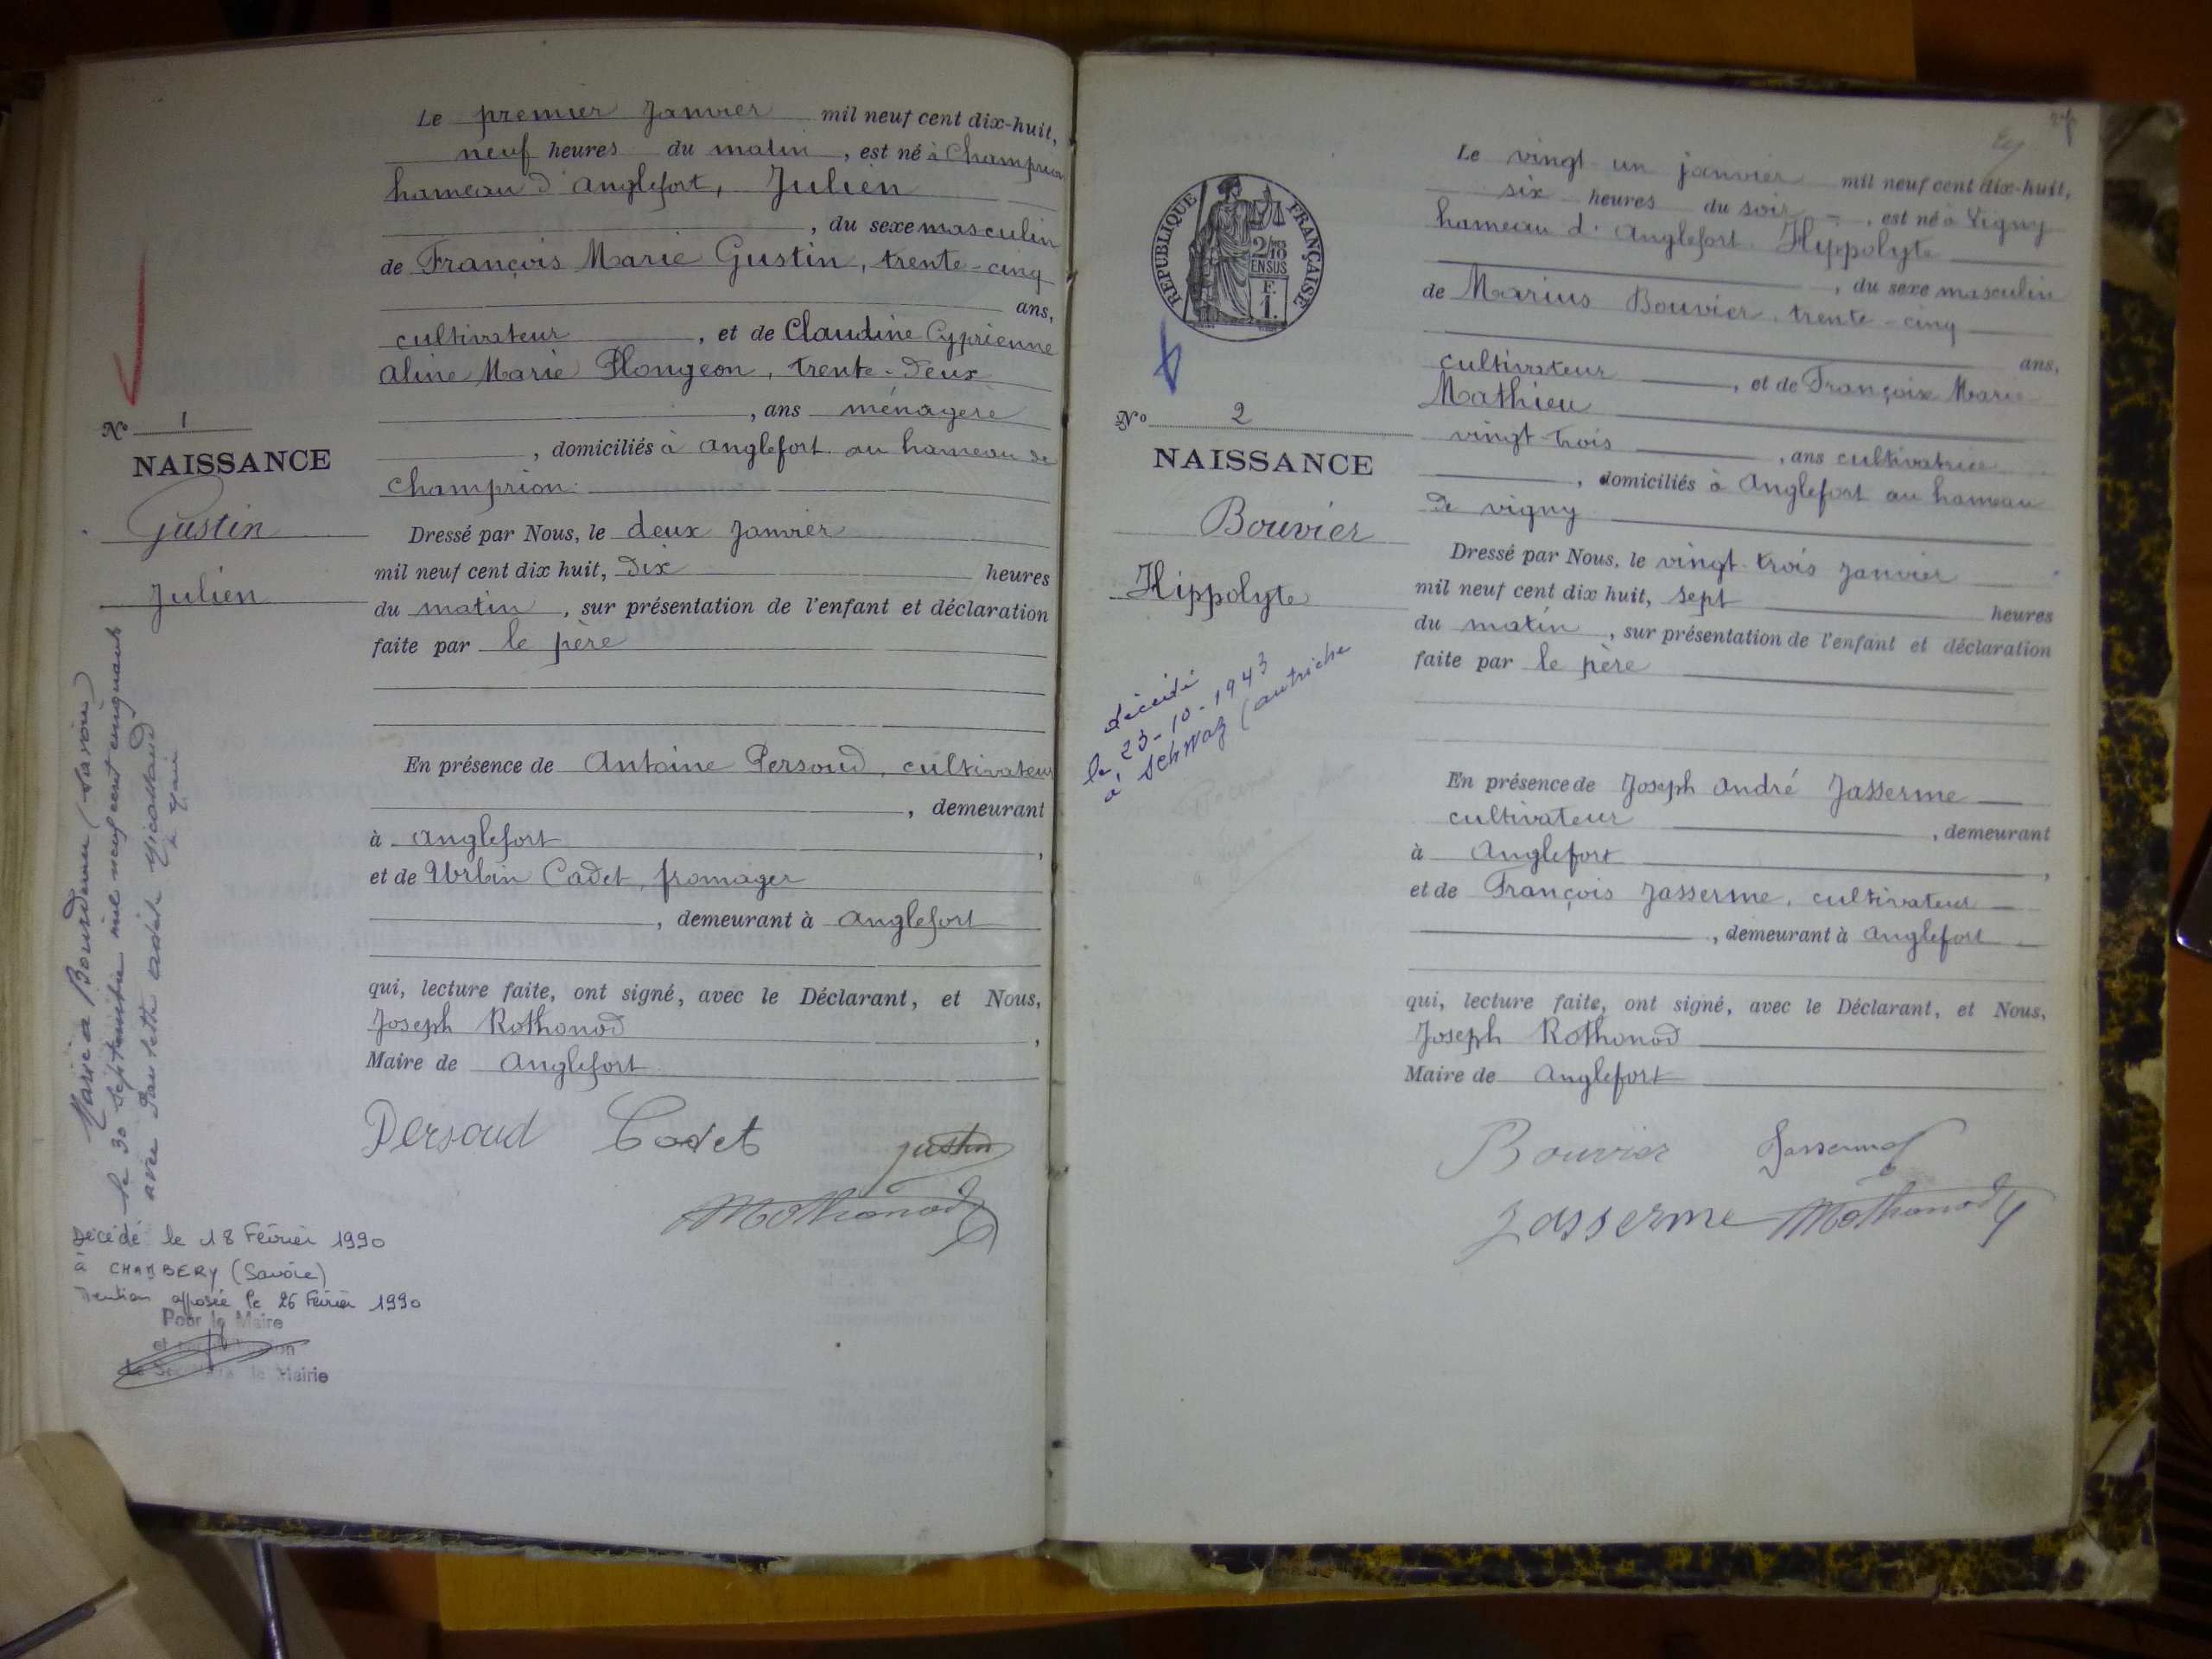 Le premier Janvier mil neuf cent dix-huit,
neuf heures du matin, est né à Champrion
hameau d'Anglefort, Julien
, du sexe masculin
de François Marie Gustin, trente-cinq
ans,
cultivateur, et de Claudine Cyprienne
Aline Marie Plongeon, trente-deux
, ans ménagère
, domiciliés à Anglefort au hameau de
Champrion.
Dressé par Nous, le deux Janvier
mil neuf cent dix huit, dix heures
du matin, sur présentation de l'enfant et déclaration
faite par le père
En présence de Antoine Persoud, cultivateur
, demeurant
à Anglefort,
et de Urbin Cadet, fromager
, demeurant à Anglefort
qui, lecture faite, ont signé, avec le Déclarant, et Nous,
Joseph Rothonod,
Maire de Anglefort
Persoud Cadet Gustin
Rothonod
No 1
NAISSANCE
Gustin
Julien
Marié à (Savoie)
le 30 septembre mil neuf cent cinquante
avec
le Maire
Décédé le 18 Février 1990
à CHAMBERY (Savoie)
Mention apposée le 26 Février 1990
Pour le Maire
Mairie
27
RÉPUBLIQUE FRANÇAISE
2/10
EN SUS
F.
1.
No 2
NAISSANCE
Bouvier
Hippolyte
décédé
le 23-10-1943
à Schwaz (autriche
Le vingt-un janvier mil neuf cent dix-huit,
six heures du soir, est né à Vigny
hameau d'Anglefort Hippolyte
, du sexe masculin
de Marius Bouvier, trente-cinq
ans,
cultivateur, et de Françoise Marie
Mathieu
vingt-trois, ans cultivatrice
, domiciliés à Anglefort au hameau
de vigny
Dressé par Nous, le vingt-trois janvier
mil neuf cent dix huit, sept heures
du matin, sur présentation de l'enfant et déclaration
faite par le père
En présence de Joseph André Jasserme
cultivateur, demeurant
à Anglefort,
et de François Jasserme, cultivateur
, demeurant à Anglefort
qui, lecture faite, ont signé, avec le Déclarant, et Nous,
Joseph Rothonod
Maire de Anglefort
Bouvier Jasserme
Jasserme Rothonod